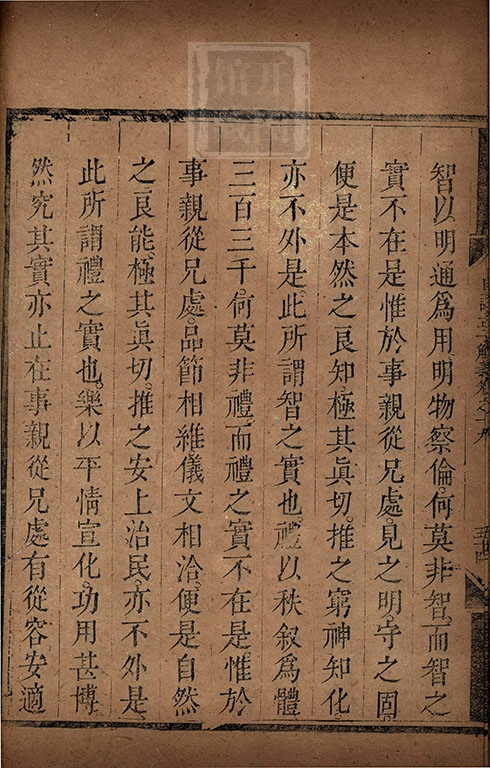 智以明通爲用明物察倫何莫非智而智之
實不在是惟於事親從兄處見之明守之固
便是本然之良知極其眞切推之窮神知化
亦不外是此所謂智之實也禮以秩叙爲體
三百三千何莫非禮而禮之實不在是惟於
事親從兄處品節相維儀文相洽便是自然
之良能極其眞切推之安上治民亦不外是
此所謂禮之實也樂以平情宣化功用甚博
然究其實亦止在事親從兄處有從容安適